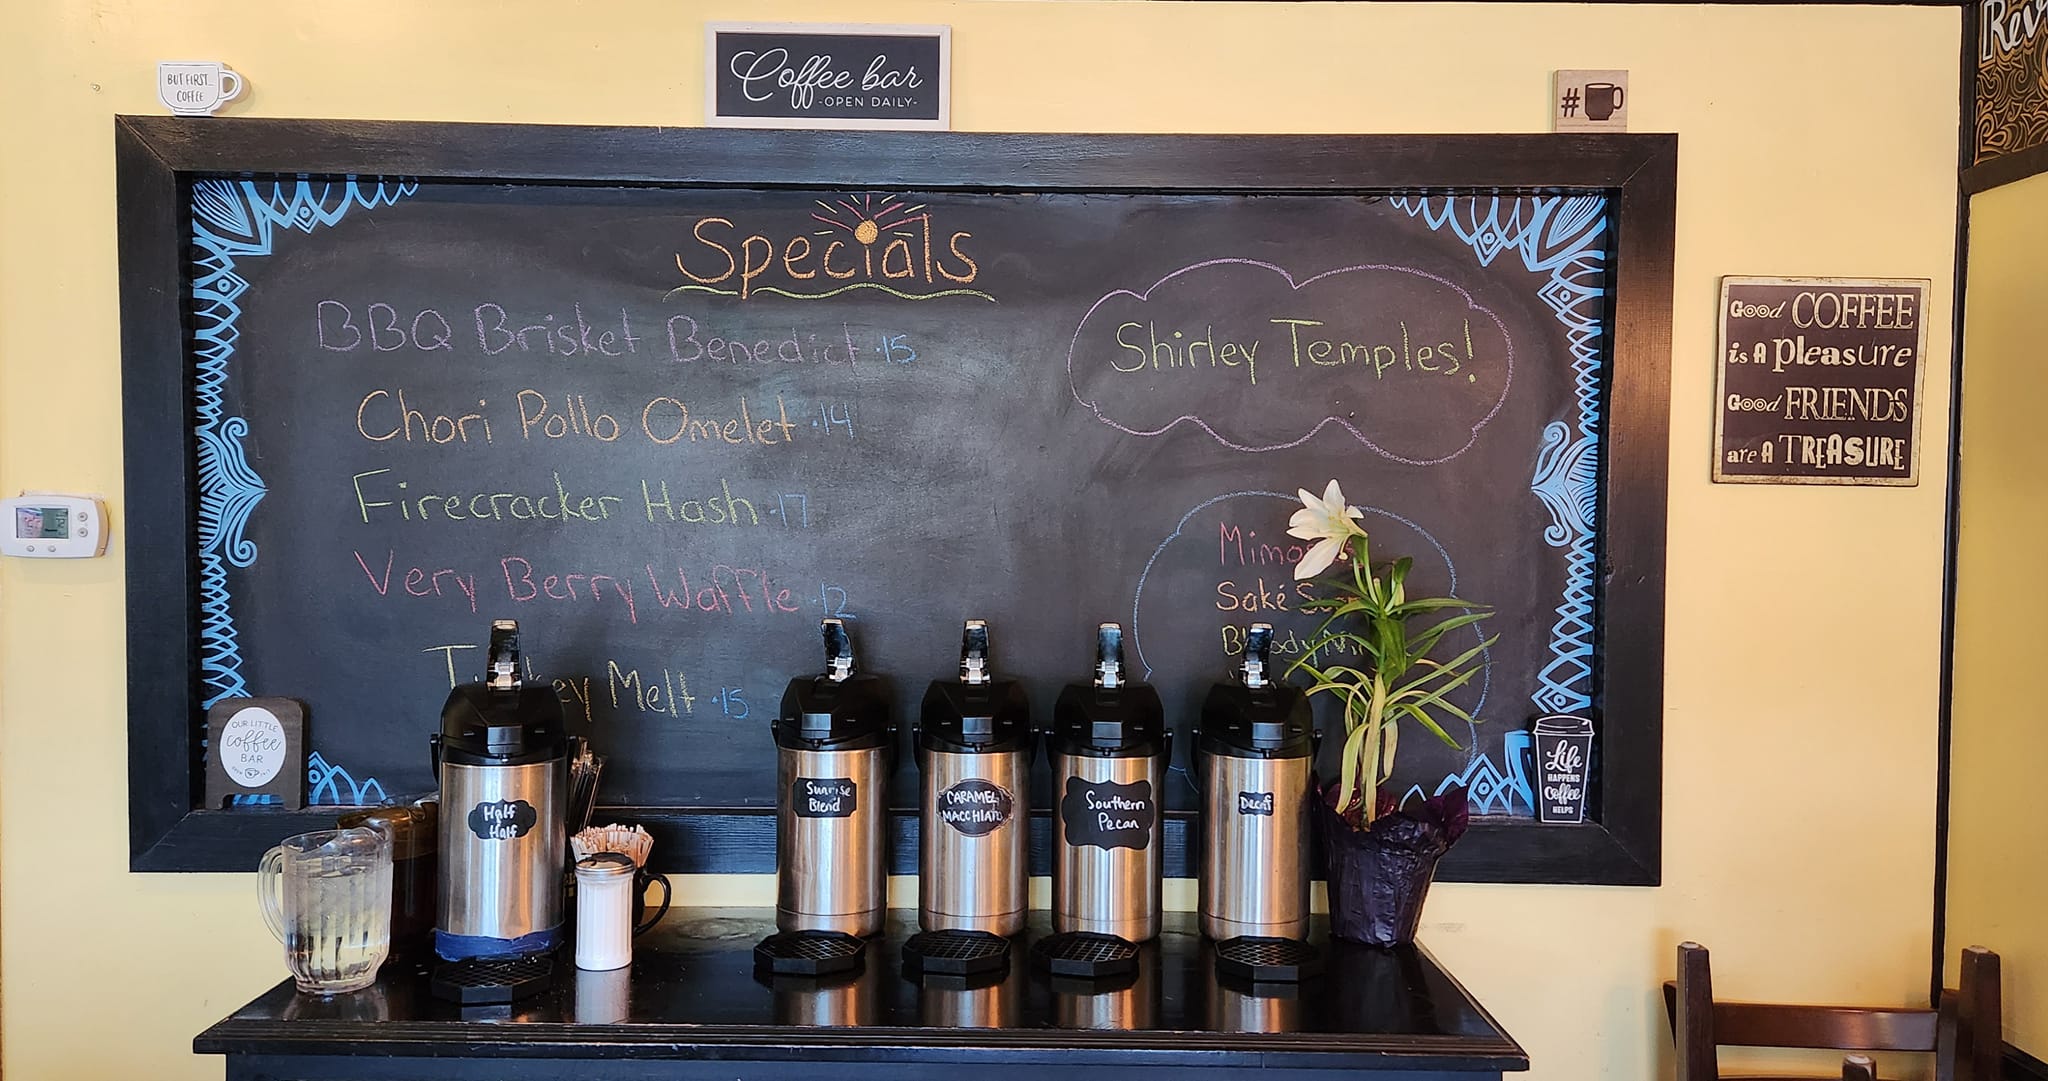 BUT FIRST...
COFFEE
Coffee bar
-OPEN DAILY-
#
Specials
BBQ Brisket Benedict .15
Chori Pollo Omelet .14
Firecracker Hash .17
Very Berry Waffle .12
Melt .15
Shirley Temples!
Saké
Good COFFEE
is A pleasure
Good FRIENDS
are A TREASURE
OUR LITTLE
coffee
BAR
Half
Half
Sunrise
Blend
CARAMEL
MACCHIATO
Southern
Pecan
Decaf
Life
HAPPENS
Coffee
HELPS